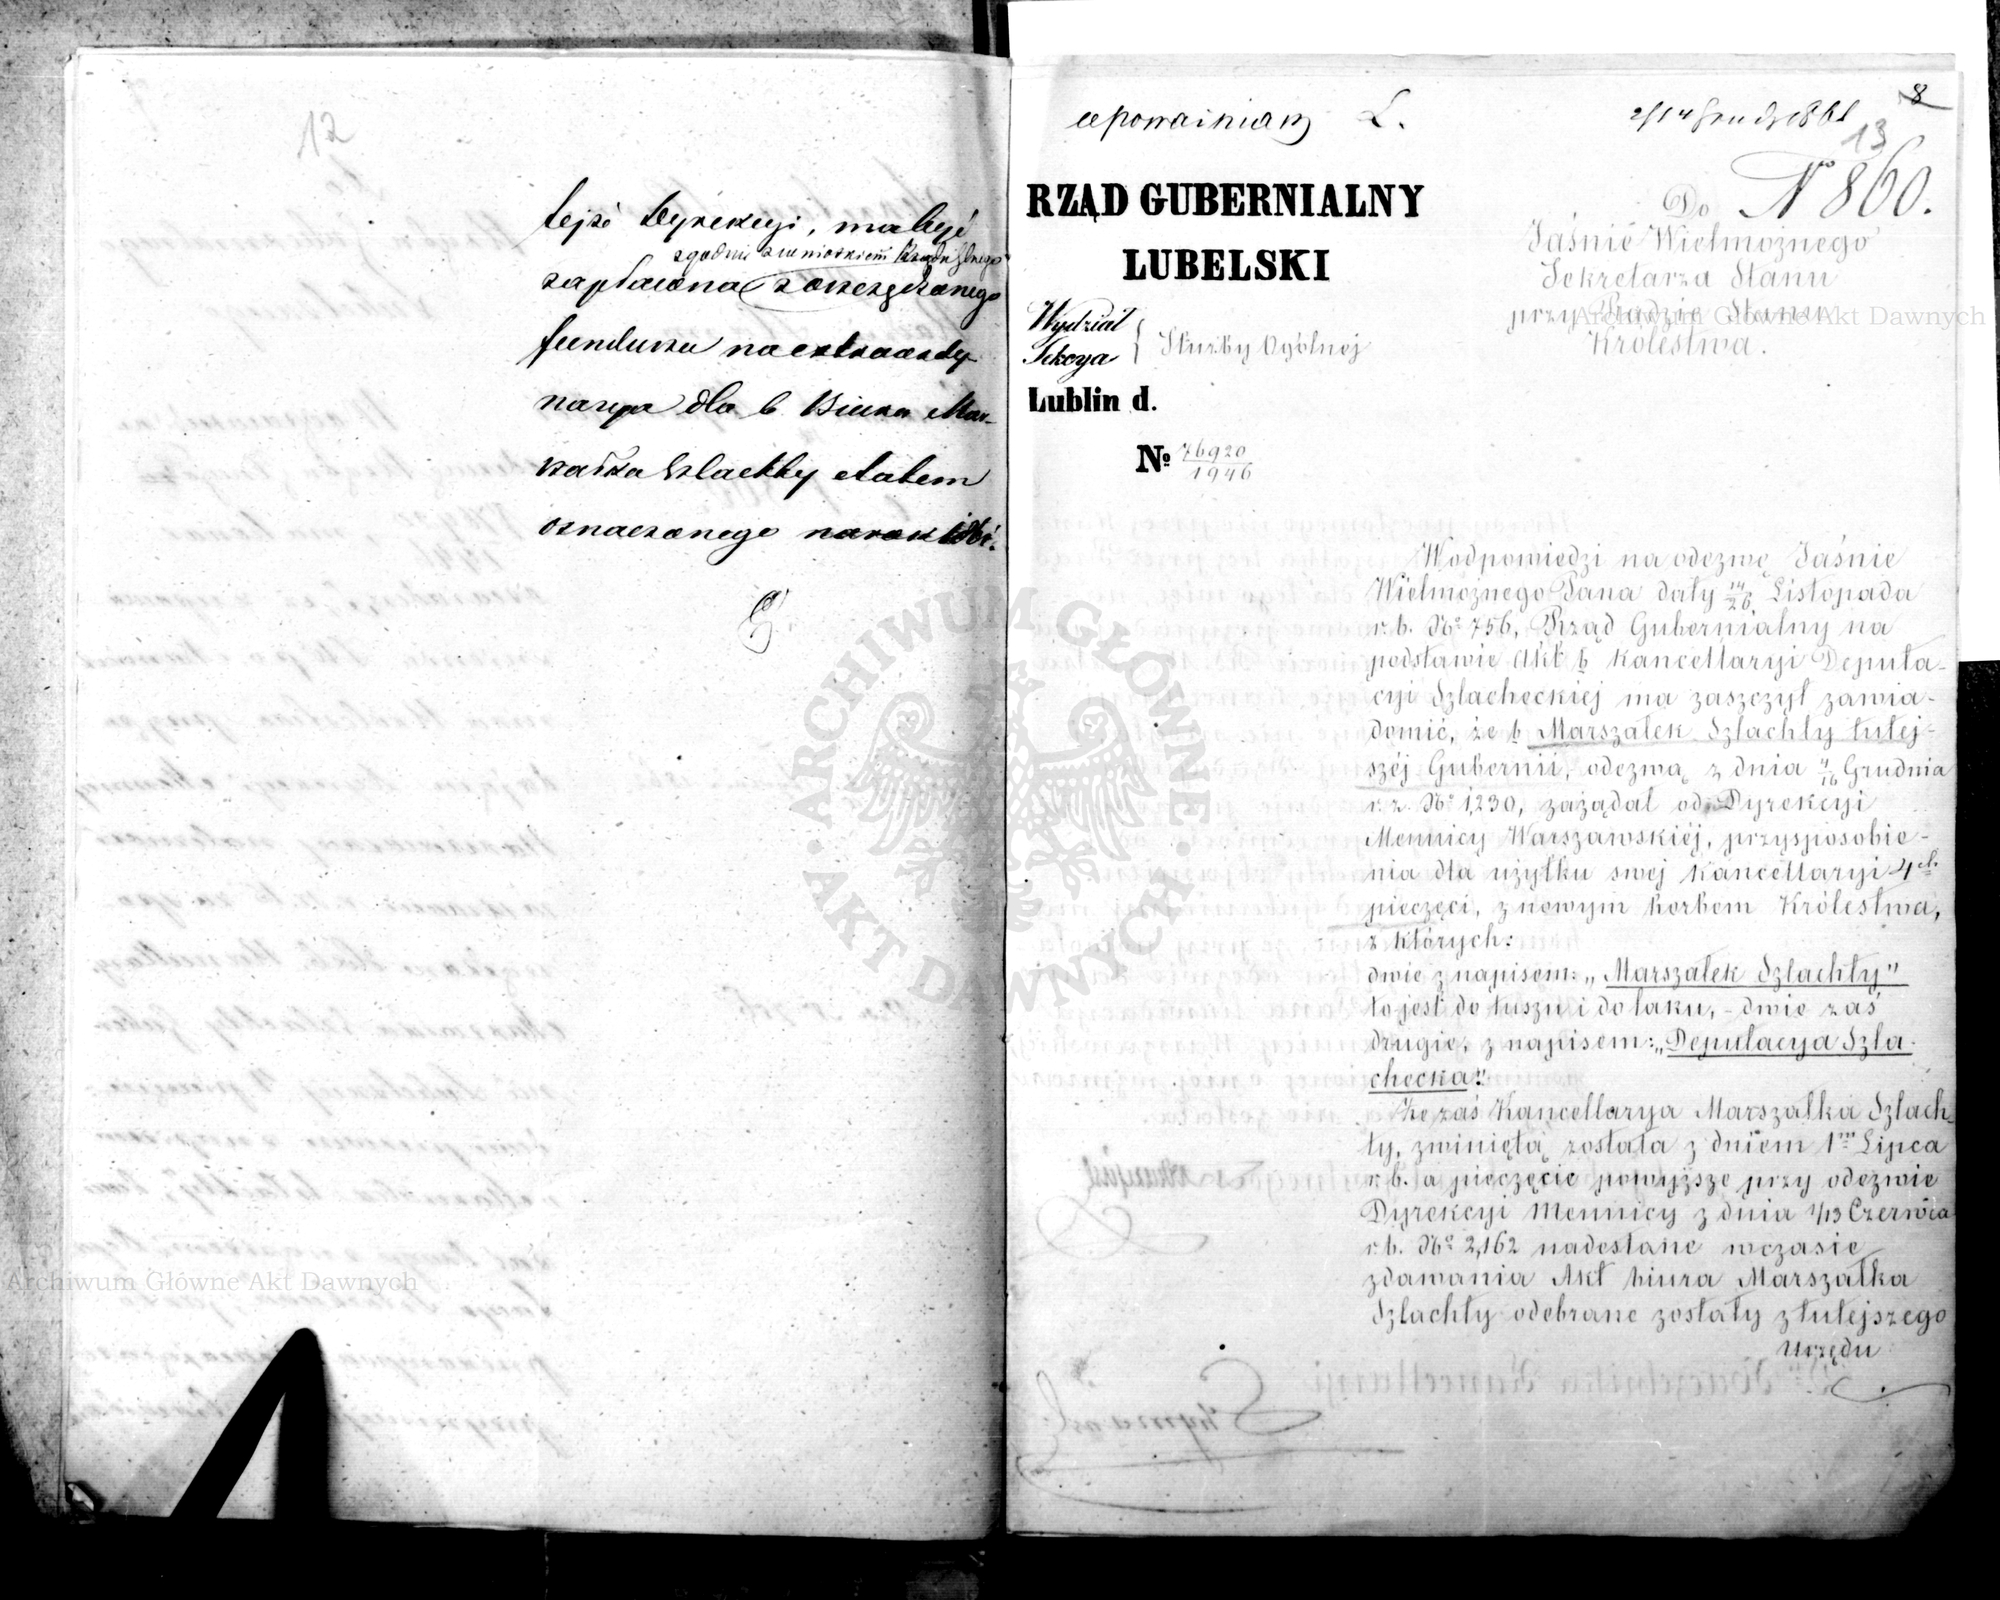 12
tejże Dyrekcyi, ma być
zgodnie z wnioskiem Rządu Gbnego
zapłacona z oszczędzonego
funduszu na extraordy-
narya dla b. Biura Mar-
szałka Szlachty etatem
oznaczonego na rok
upoważniam L.
8
13
Nº 860.
RZĄD GUBERNIALNY
LUBELSKI
Wydział
Sekcya
Służby Ogólnej
Lublin d.
Nº 76920
1946
Do
Jaśnie Wielmożnego
Sekretarza Stanu
przy Radzie Stanu
Królestwa.
W odpowiedzi na odezwę Jaśnie
Wielmożnego Pana daty 14/26 Listopada
r. b. Nº 756, Rząd Gubernialny na
podstawie Akt b Kancellaryi Deputa-
cyi Szlacheckiej ma zaszczyt zawia-
domić, że b Marszałek Szlachty tutej-
széj Gubernii, odezwą z dnia 4/16 Grudnia
r. z. Nº 1,230, zażądał od Dyrekcyi
Mennicy Warszawskiéj, przysposobie-
nia dla użytku swej Kancellaryi 4ch
pieczęci, z nowym herbem Królestwa,
z których:
dwie z napisem: „Marszałek Szlachty"
to jest do tuszu i do laku, - dwie zaś
drugie, z napisem: „Deputacya Szla-
checka".
Że zaś Kancellarya Marszałka Szlach-
ty, zwiniętą została z dniem 1m Lipca
r. b. a pieczęcie powyższe przy odezwie
Dyrekcyi Mennicy z dnia 1/13 Czerwca
r. b. Nº 2,162 nadesłane w czasie
zdawania Akt biura Marszałka
Szlachty odebrane zostały z tutejszego
Urzędu
ARCHIWUM GŁÓWNE AKT DAWNYCH
Archiwum Główne Akt Dawnych
Archiwum Główne Akt Dawnych